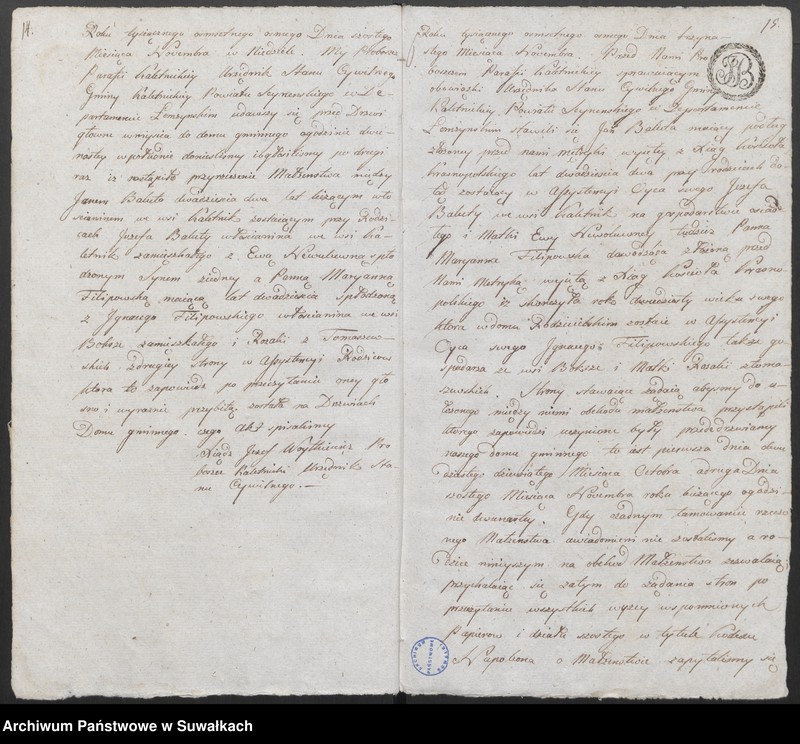 14.
Roku tysiącznego osmsetnego osmego Dnia szostego
Miesiąca Novembra w Niedziele. My Proboszcz
Parafii Kaletnickiey Urzędnik Stanu Cywilnego
Gminy Kaletnickiey Powiatu Seynenskiego w De-
partamencie Łomzynskim udawszy się przed Drzwi
głowne weyscia do domu gminnego ogodzinie dwu-
nastey wpołudnie doniesliśmy i ogłosiliśmy po drugi
raz iz nastąpiło przyrzeczenie Małzenstwa między
Janem Baluto dwadziescia dwa lat liczącym wło-
scianinem we wsi Kaletnik zostaiącym przy Rodzi-
cach Jozefa Baluty włoscianina we wsi Ka-
letnik zamieszkałego z Ewą Newulewną spło-
dzonym Synem ziedney a Panną Maryanną
Filipowską maiącą lat dwadziescia spłodzoną
z Jgnacego Filipowskiego włoscianina we wsi
Boksze zamieszkałego i Rozalii z Tomaszew-
skich zdrugiey strony w Assystencyi Rodzicow
ktora to zapowiedz po przeczytaniu oney gło-
sno i wyraznie przybitą została na Drzwiach
Domu gminnego czego Akt spisaliśmy
Xiądz Jozef Woytkiewicz Pro-
boszcz Kaletnicki Urzędnik Sta-
nu Cywilnego. —
15.
Roku tysiącznego osmsetnego osmego Dnia trzyna-
stego Miesiąca Novembra. Przed Nami Pro-
boszczem Parafii Kaletnickiey sprawuiącym
obowiązki Urzędnika Stanu Cywilnego Gminy
Kaletnickiey Powiatu Seynenskiego w Departamencie
Łomzynskim stawili się Jan Baluta maiący podług
złozoney przed nami metryki wyiętey z Xiąg Kościoła
Krasnopolskiego lat dwadziescia dwa przy Rodzicach do-
tąd zostaiący w Assystencyi Oyca swego Jozefa
Baluty we wsi Kaletnik na gospodarstwie osiad-
łego i Matki Ewy Newulewney tudziesz Panna
Maryanna Filipowska dowodząca złozoną przed
Nami Metryką wyiętą z Xiąg Kościoła Krasno-
polskiego iz skonczyła rok dwudziesty wieku swego
ktora w domu Rodzicielskim zostaie w Assystencyi
Oyca swego Jgnacego Filipowskiego także go-
spodarza ze wsi Boksze i Matki Rozalii z Toma-
szewskich. Strony stawaiące ządaią abysmy do u-
łozonego między niemi obchodu małzenstwa przystąpili
ktorego zapowiedzi uczynione były przededrzwiami
naszego domu gminnego to iest pierwsza dnia dwu-
dziestego dziewiątego Miesiąca Octobra a druga Dnia
szostego Miesiąca Novembra roku biezącego ogodzi-
nie dwunastey. Gdy zadnym tamowanie rzeczo-
nego Małzenstwa uwiadomieni nie zostalismy a ro-
dzice ninieyszym na obchod Małzenstwa zezwalaią,
przychylaiąc się zatym do ządania stron po
przeczytaniu wszystkich wyzey wspomnionych
Papierow i działu szostego w tytule Kodexu
Napoleona o Małzenstwie zapytalismy się
ARCHIWUM PAŃSTWOWE
Archiwum Państwowe w Suwałkach